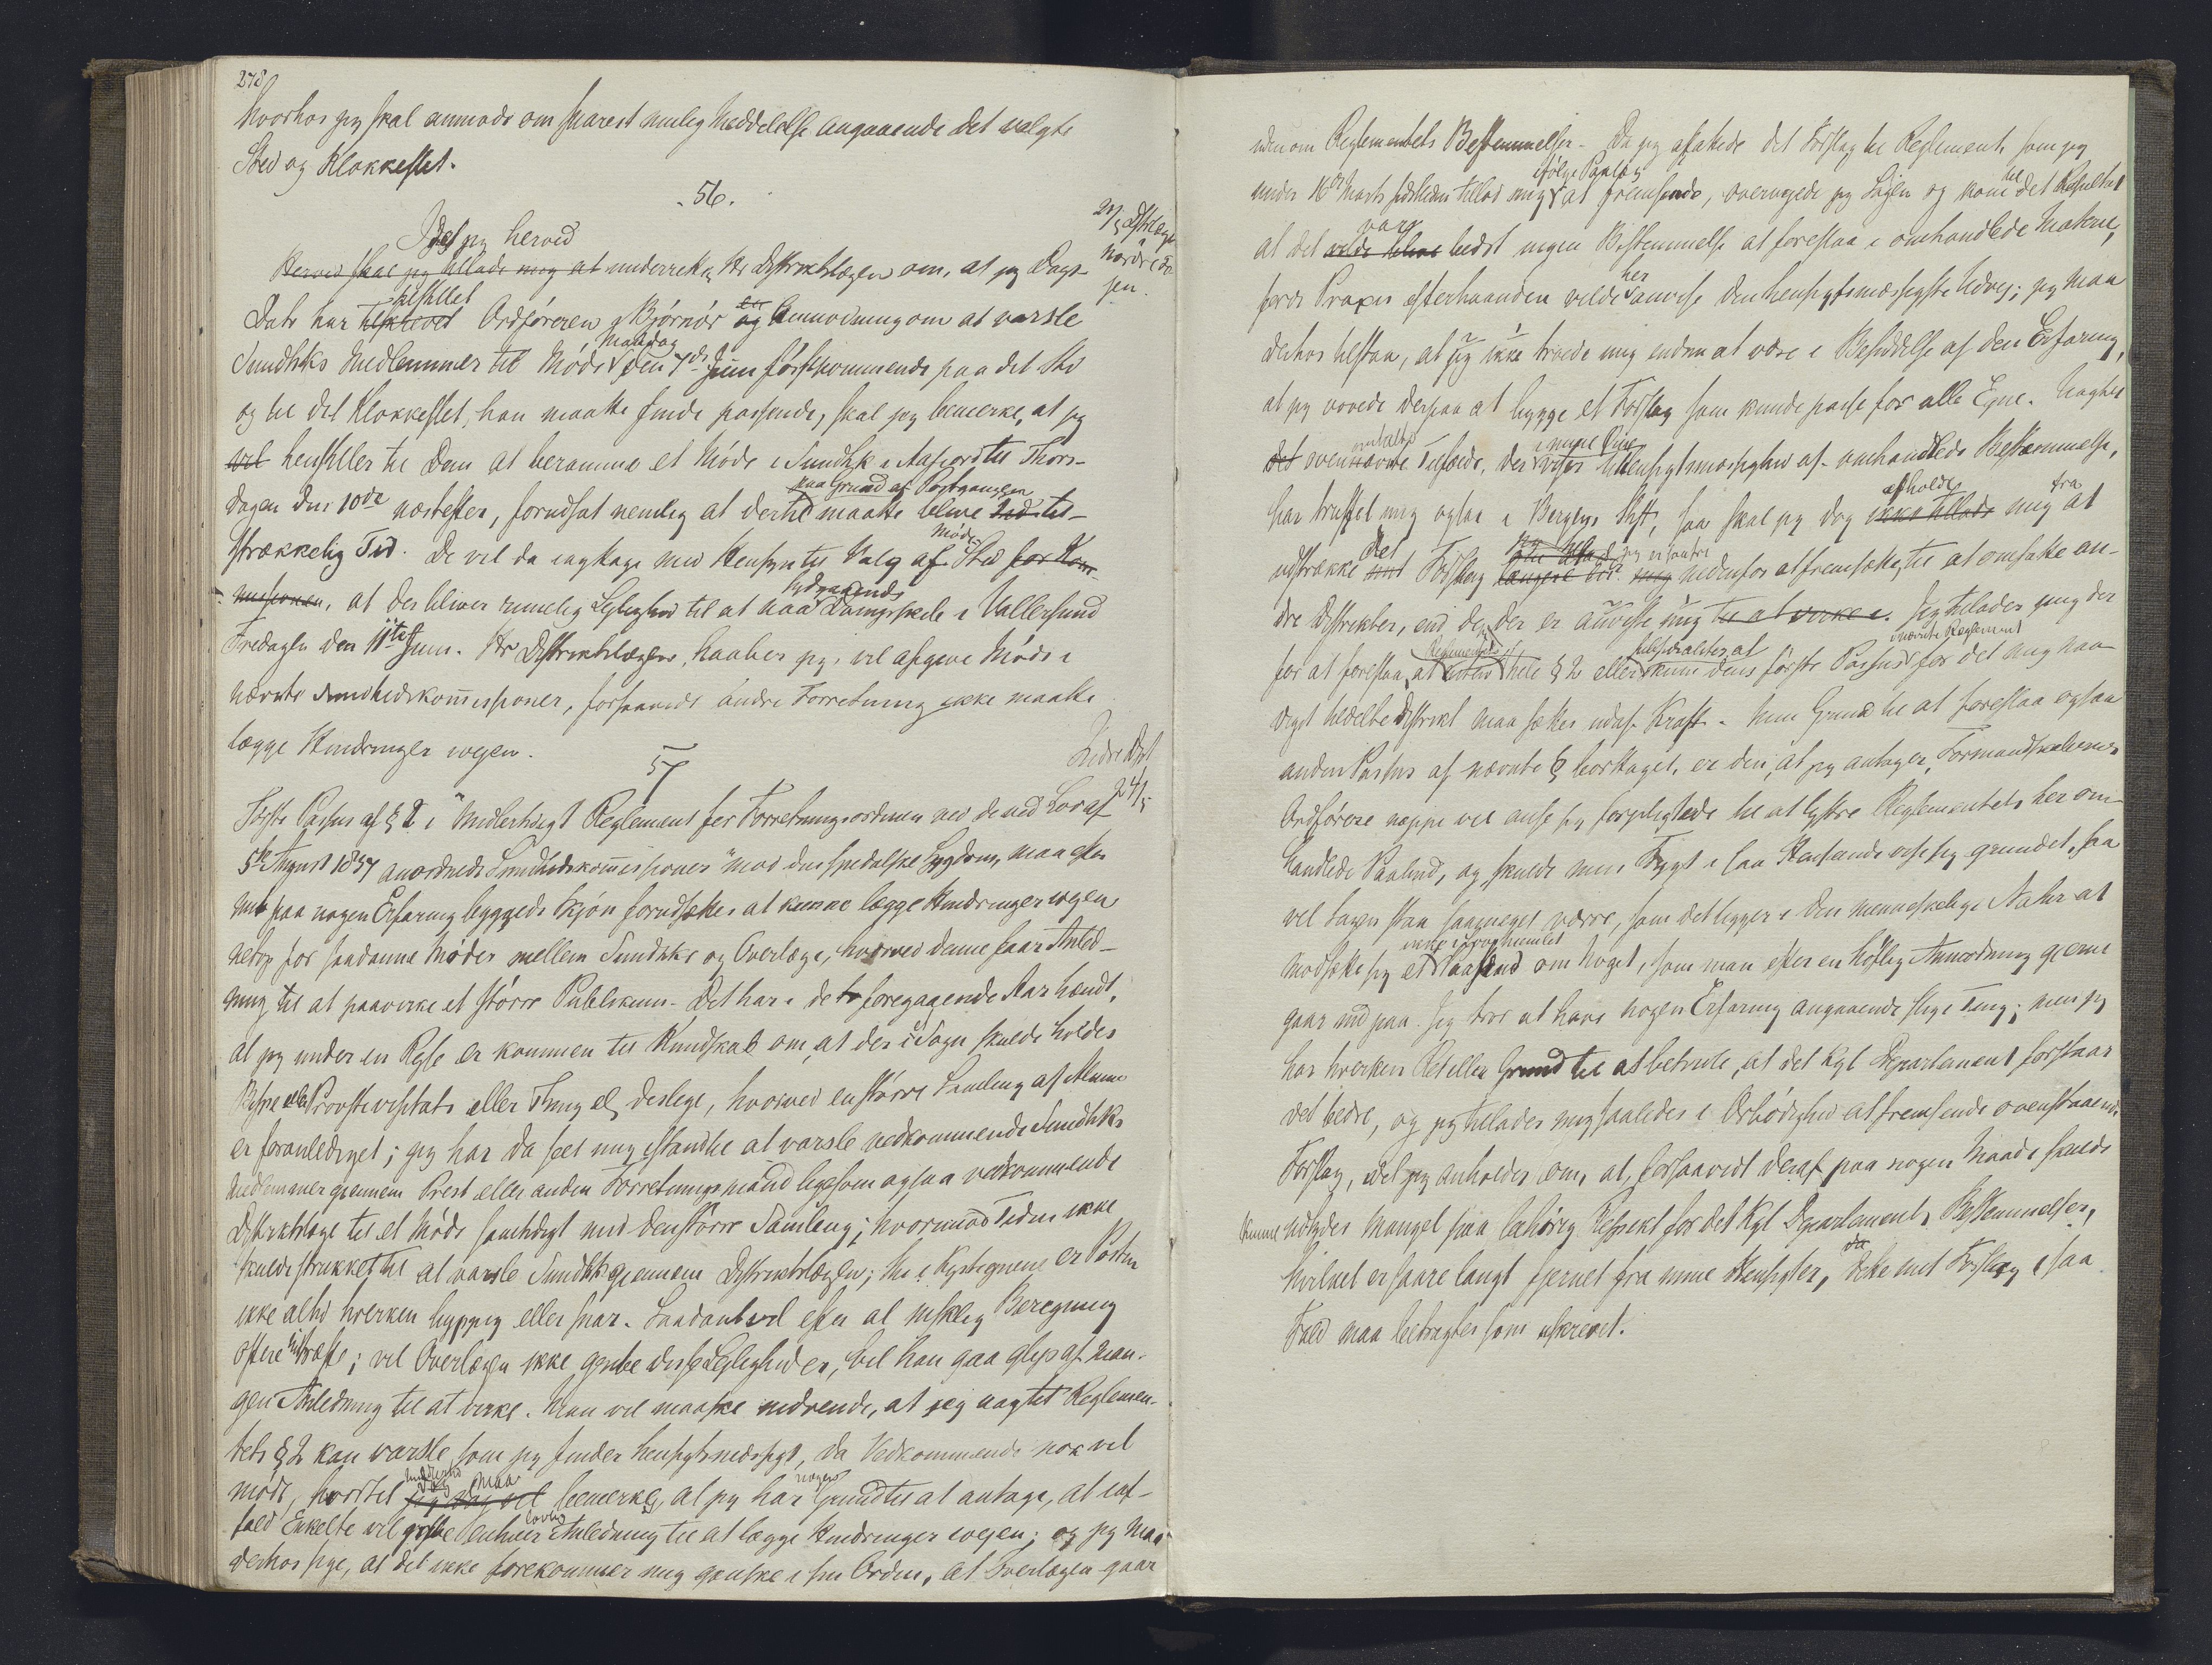 278
hvorhos jeg skal anmode om snarest mulig Meddelelse angaaende det valgte
Sted og Klokkeslet.
56.
Idet jeg herved
Herved skal jeg tillade mig at underrette Hr Distriktslægen om, at jeg Dags
Dato har tilskrevet tilstillet Ordføreren i Bjørnør en og Anmodning om at varsle
Sundhks Medlemmer til Møde Mandag den 7de Juni førstkommende paa det Sted
og til det Klokkeslet, han maatte finde passende, skal jeg bemærke, at jeg
vil henstiller til Dem at beramme et Møde i Sundhk i Aafjord til Thors-
dagen den 10de næstefter, forudsat nemlig at dertil paa Grund af Postgangen maatte blive Tid til-
strækkelig Tid. De vil da iagttage med Hensyn til Valg af Møde-Sted for Kom-
missionen, at der bliver rimelig Leilighed til at naa sydgaaende Dampskib i Vallersund
Fredagen den 11te Juni. Hr Distriktslægen, haaber jeg, vil afgive Møde i
nævnte Sundhedskommissioner, forsaavidt andre Forretning ikke maatte
lægge Hindringer iveien.
57
Indre Dpt
24/5
Første Passus af § 2 i "Midlertidigt Reglement for Forretningsordenen ved de ved Lov af
5te August 1857 anordnede Sundhedskommissioner" mod den spedalske Sygdom, maa efter
mit paa nogen Erfaring byggede Skjøn forudsættes at kunne lægge Hindringer iveien
netop for saadanne Møder mellem Sundhks og Overlæge, hvorved denne faar Anled-
ning til at paavirke et større Publikum. Det har i de to foregaaende Aar hændt,
at jeg under en Reise er kommen til Kundskab om, at der i Sogn skulde holdes
Bispe eller Provstevisitats eller Thing el deslige, hvorved en større Samling af Almue
er foranlediget; jeg har da seet mig istand til at varsle vedkommende Sundhks
Medlemmer gjennem Prest eller anden Forretningsmand ligesom ogsaa vedkommende
Distriktslæge til et Møde samtidigt med den større Samling; hvorimod Tiden ikke
skulde strukket til at varsle Sundhk gjennem Distriktslægen; thi i Kystegnene er Posten
ikke altid hverken hyppig eller snar. Saadant vil efter al rimelig Beregning
oftere indtræffe; vil Overlægen ikke gribe disse Leiligheder, vil han gaa glip af man-
gen Anledning til at virke. Man vil maaske indvende, at jeg uagtet Reglemen-
tets § 2 kan varsle, som jeg finder hensigtsmæssigt, da Vedkommende nok vil
møde, hvortil jeg dog vil imidlertid maa bemærkes, at jeg har nogen Grund til at antage, at iaf-
fald Enkelte vil gribe enhver lovlig Anledning til at lægge Hindringer iveien; og jeg maa
derhos sige, at det ikke forekommer mig ganske i sin Orden, at Overlægen gaar
udenom Reglementets Bestemmelser. Da jeg affattede det Forslag til Reglement, som jeg
under 16de Marts sidstleden tillod mig ifølge Paalæg at fremsende, overveiede jeg Sagen og kom til det Resultat
at det vilde blive var bedst ingen Bestemmelse at foreslaa i omhandlede Materie,
fordi Praxis efterhaanden vilde her anvise den hensigtsmæssigste Udvei; jeg maa
derhos tilstaa, at jeg ikke troede mig endnu at være i Besiddelse af den Erfaring,
at jeg vovede derpaa at bygge et Forslag som kunde passe for alle Egne. Uagtet
det ovennævnte omtalte Tilfælde, der viser i mine Øine Uhensigtsmæssighed af omhandlede Bestemmelse,
har truffet mig ogsaa i Bergens Stift, saa skal jeg dog ikke tillade afholde mig fra at
udstrække mit det Forslag længere end jeg nedenfor at fremsætte, til at omfatte an-
dre Distrikter, end de, der er anviste mig til at virke i. Jeg tillader mig der
for at foreslaa, at enten hele § 2 eller kun dens første Passus i nævnte Reglement for det mig naa-
digst tildelte Distrikt maa sættes udaf Kraft. Min Grund til at foreslaa ogsaa
anden Passus af nævnte § borttaget, er den, at jeg antager, Formandskabernes
Ordførere neppe vil anse sig forpligtede til at lystre Reglementets her om-
handlede Paabud, og skulde min Frygt i saa Henseende vise sig grundet, saa
vil Sagen staa saameget værre, som det ligger i den menneskelige Natur at
modsætte sig et ikke Paabud om Noget, som man efter en høflig Anmodning gjerne
gaar ind paa. Jeg tror at have nogen Erfaring angaaende slige Ting; men jeg
har hverken Ret eller Grund til at betvivle, at det Kgl Departement forstaar
det bedre, og jeg tillader mig saaledes i Ærbødighed at fremsende ovenstaaende
Forslag, idet jeg anholder om, at, forsaavidt deraf paa nogen Maade skulde
kunne udtydes Mangel paa behørig Respekt for det Kgl Departements Bestemmelser,
hvilket er saare langt fjernet fra mine Hensigter, da dette mit Forslag i saa
Fald maa betragtes som uskrevet.